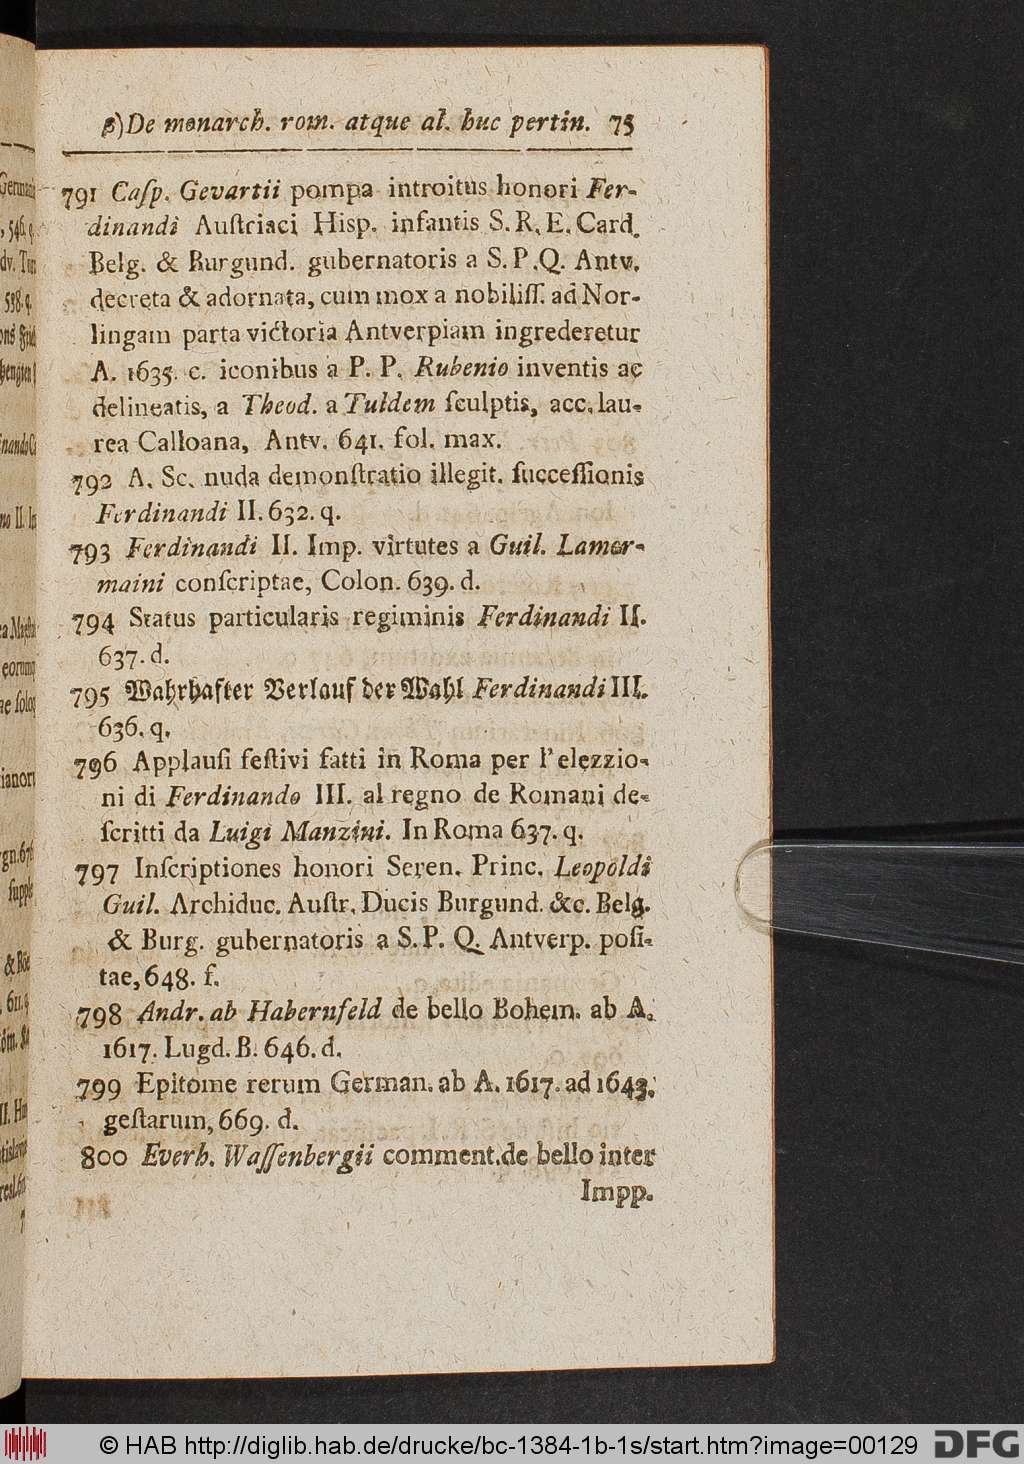 β)De monarch. rom. atque al. huc pertin. 75
791 Caſp. Gevartii pompa introitus honori Fer-
dinandi Auſtriaci Hisp. infantis S. R. E. Card.
Belg. & Burgund. gubernatoris a S. P. Q. Antv.
decreta & adornata, cum mox a nobiliſſ. ad Nor-
lingam parta victoria Antverpiam ingrederetur
A. 1635. c. iconibus a P. P. Rubenio inventis ac
delineatis, a Theod. a Tuldem ſculptis, acc. lau-
rea Calloana, Antv. 641. fol. max.
792 A. Sc. nuda demonſtratio illegit. ſucceſſionis
Ferdinandi II. 632. q.
793 Ferdinandi II. Imp. virtutes a Guil. Lamor-
maini conſcriptae, Colon. 639. d.
794 Status particularis regiminis Ferdinandi II.
637. d.
795 Wahrhafter Verlauf der Wahl Ferdinandi III.
636. q.
796 Applauſi feſtivi fatti in Roma per l'elezzio-
ni di Ferdinando III. al regno de Romani de-
ſcritti da Luigi Manzini. In Roma 637. q.
797 Inſcriptiones honori Seren. Princ. Leopoldi
Guil. Archiduc. Auſtr. Ducis Burgund. &c. Belg.
& Burg. gubernatoris a S. P. Q. Antverp. poſi-
tae, 648. f.
798 Andr. ab Habernfeld de bello Bohem. ab A.
1617. Lugd. B. 646. d.
799 Epitome rerum German. ab A. 1617. ad 1643.
geſtarum, 669. d.
800 Everh. Waſſenbergii comment. de bello inter
Impp.
© HAB http://diglib.hab.de/drucke/bc-1384-1b-1s/start.htm?image=00129
DFG